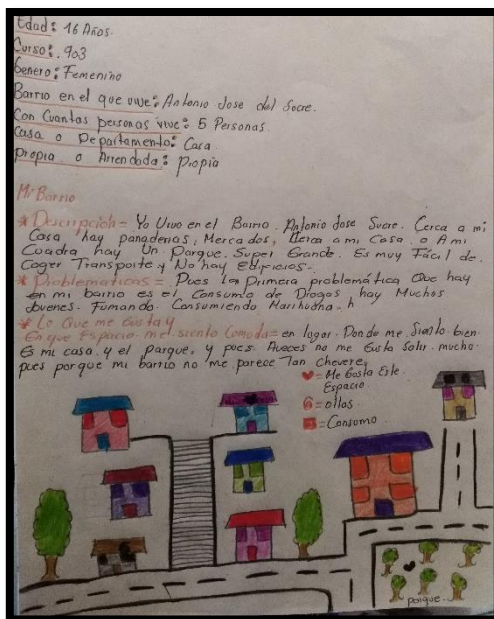 Edad: 16 Años.
Curso: 903
Genero: Femenino
Barrio en el que vive: Antonio Jose del Sucre.
Con Cuantas personas vive: 5 Personas.
Casa o Departamento: Casa
Propia o Arrendada: Propia
Mi Barrio
* Descripcion = Yo Vivo en el Barrio. Antonio Jose Sucre. Cerca a mi
Casa hay panaderias, Mercados, Cerca a mi Casa o A mi
Cuadra hay Un Parque. Super Grande. Es muy Fácil de.
Coger Transporte y No hay edificios.
* Problematicas = Pues la Primera problemática Que hay
en mi barrio es el Consumo de Drogas, hay Muchos
Jovenes. Fumando. Consumiendo
* Lo Que me Gusta y
En que Espacio me siento Comoda = en lugar. Donde me Siento bien.
Es mi casa y el parque. y pues Aveces no me Gusta Salir mucho.
pues porque mi barrio no me parece Tan Chevere.
= Me Gusta Este
Espacio.
= ollas
= Consumo
parque.